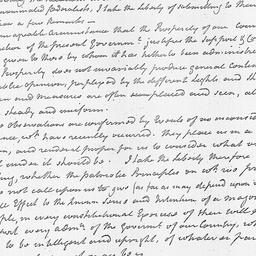 nominated federalists, I take the liberty of submitting to them
a few Remarks —
agreable Circumstance that the Prosperity of our Coun
of the present Governm.t justifies the support &
given to those by whom it has hitherto been administr
Prosperity does not invariably produce general Conten
opinions, perplexed by the different lights, and th
and measures are often examplaced and seen, al
steady and uniform.
observations are confirmed by Events of no inconsid
ance, wch have recently occurred. They place us in a
and render it proper for us to consider what w
under it should be. I take the liberty therefore
whether the patriotic Principles on wch we pro
not call upon us to give (as far as may depend upon u
Effect to the known Sense and Intention of a majori
ple, in every constitutional Exercise of their will
every admn. of the Governmt of our Country, wh
to be intelligent and upright, of whatever par